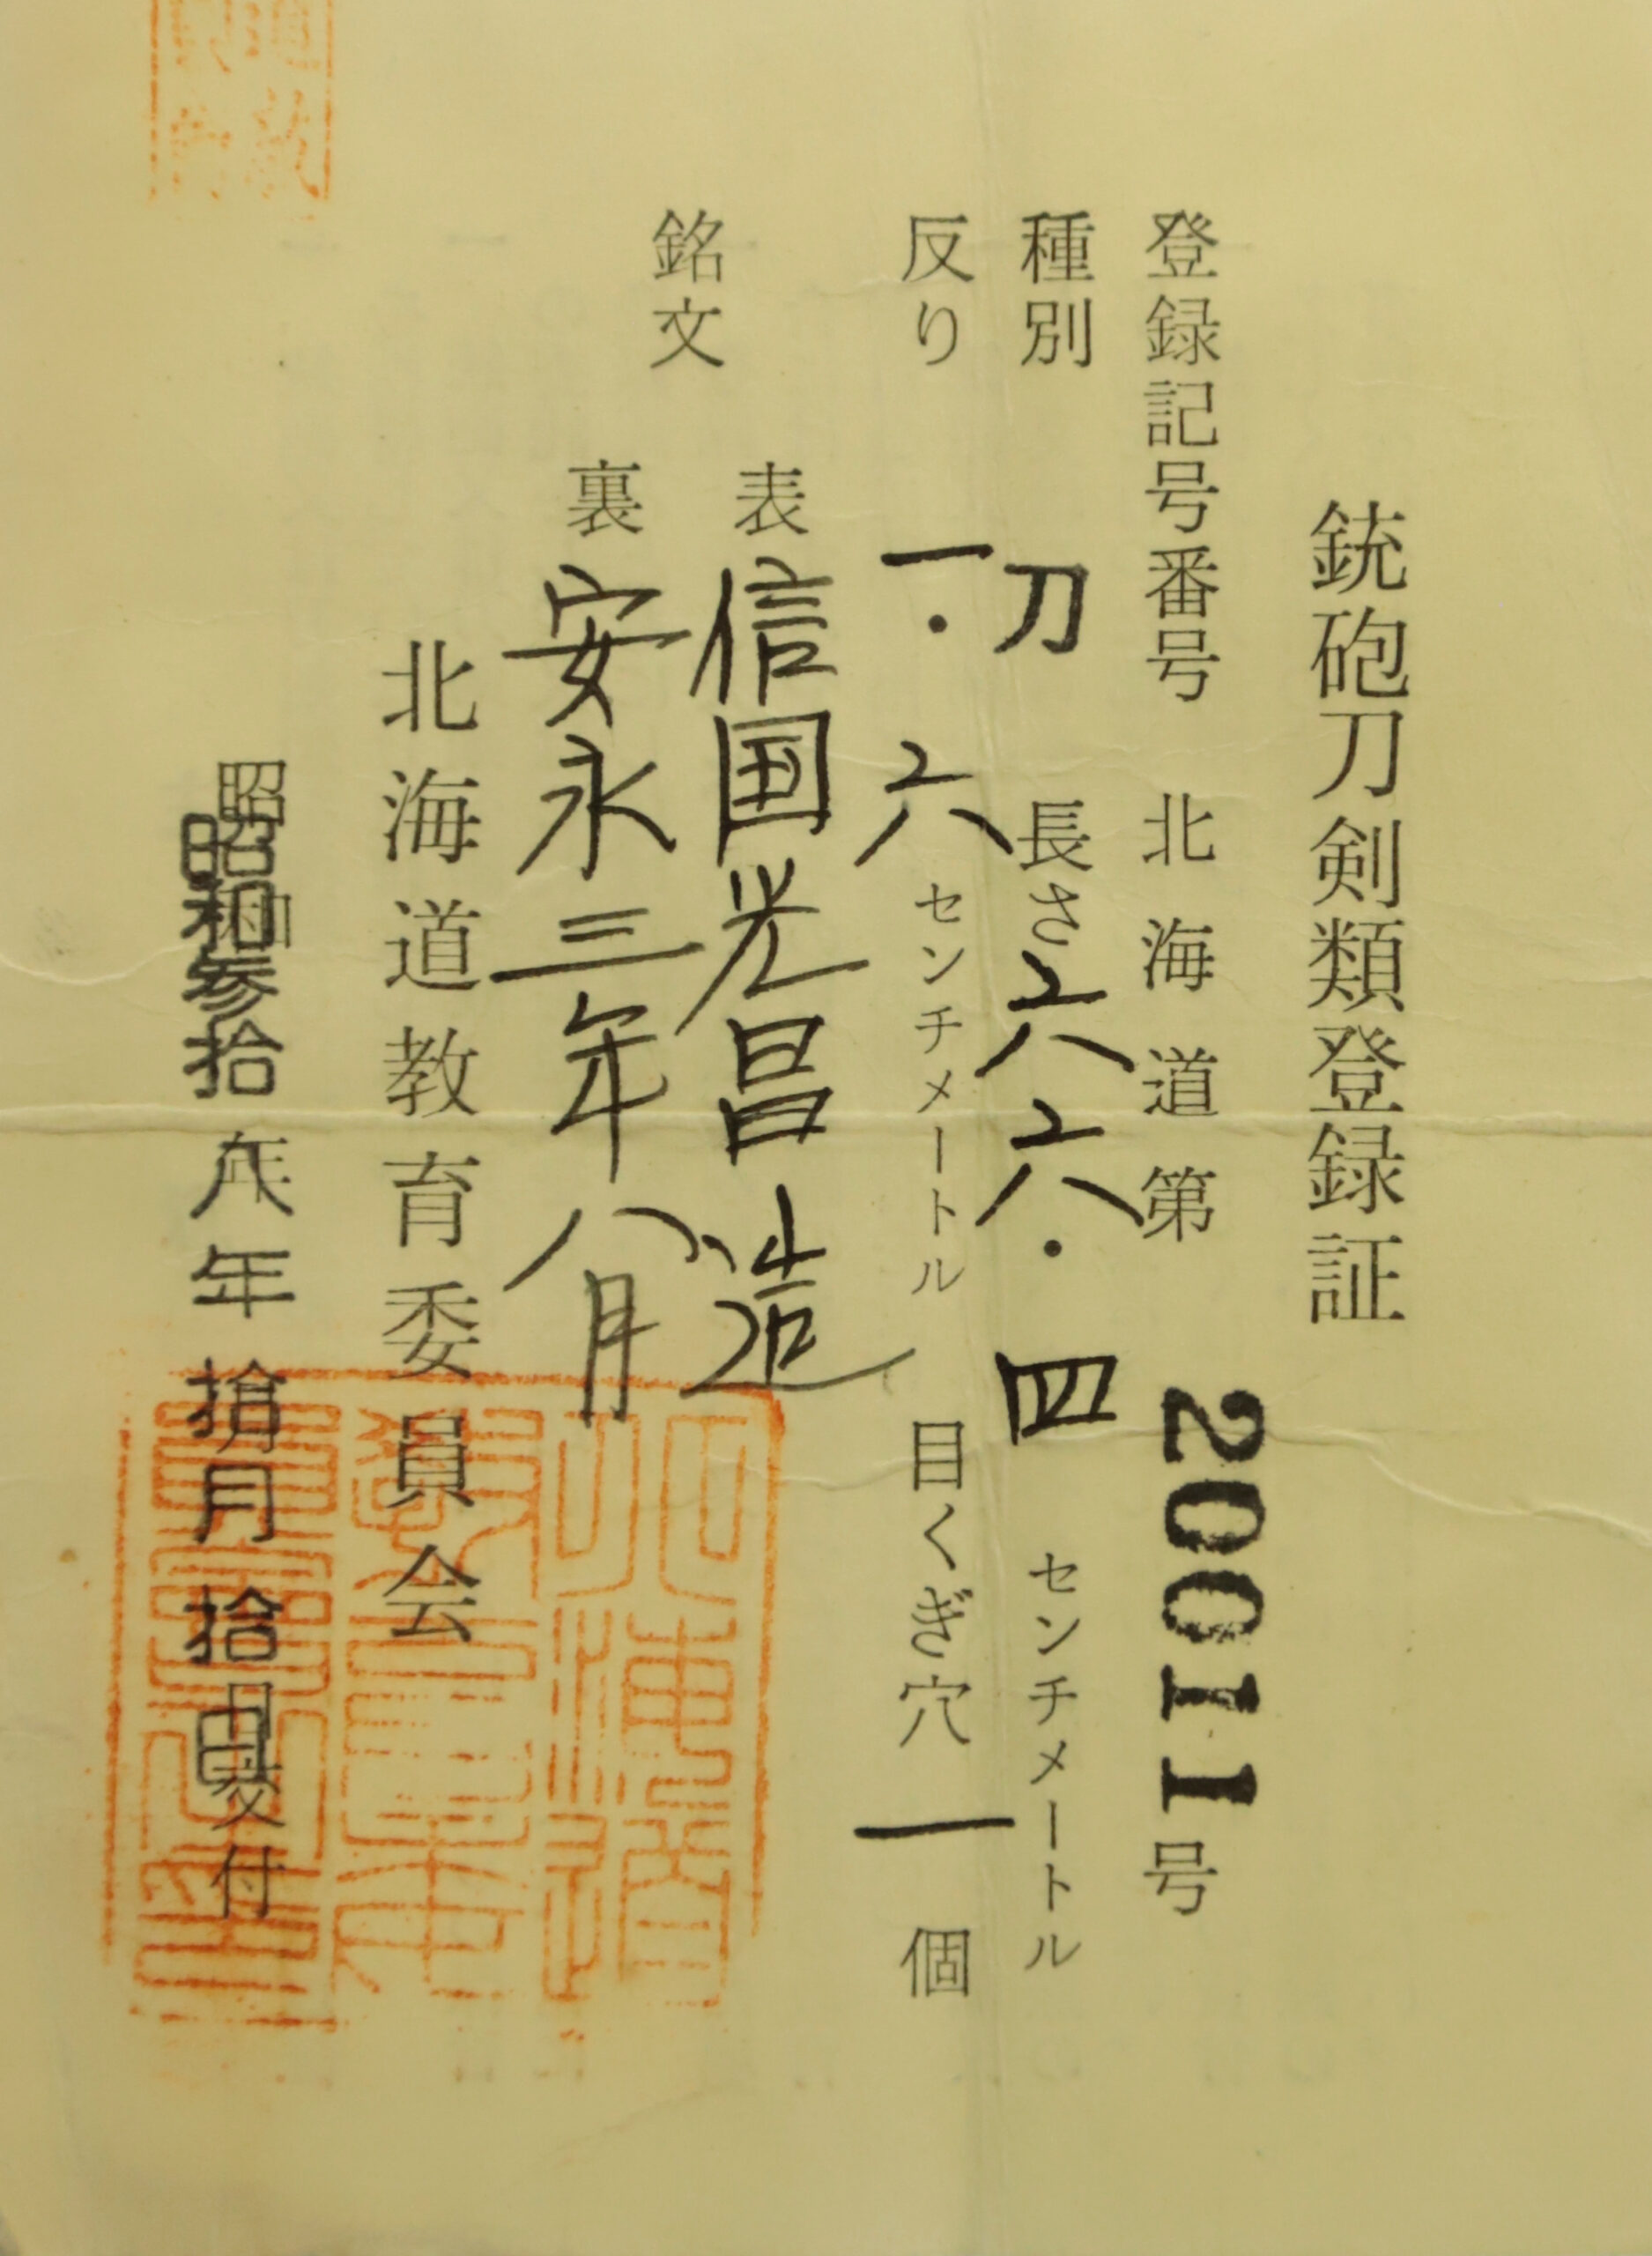 銃砲刀剣類登録証
登録記号番号 北海道第 20011 号
種別 刀 長さ 六六.四 センチメートル
反り 一.六 センチメートル 目くぎ穴 一 個
銘文
表 信国光昌造
裏 安永三年八月
北海道教育委員会
昭和参拾八年拾月拾日交付